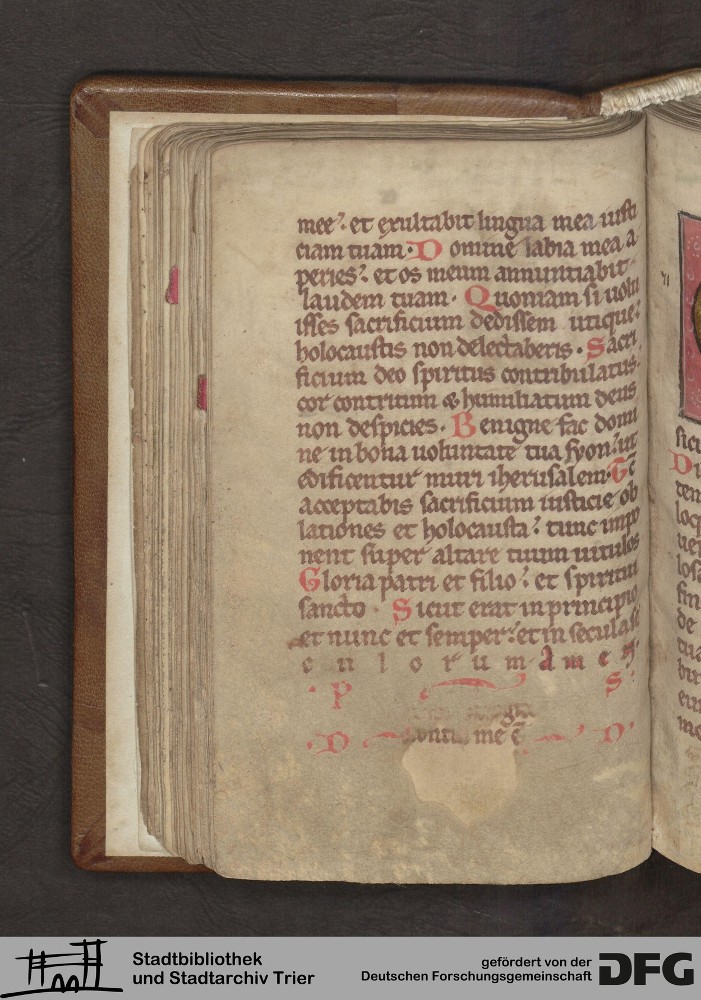 mee? et exultabit lingua mea iusti
ciam tuam. Domine labia mea a
peries? et os meum annuntiabit
laudem tuam. Quoniam si uolu
isses sacrificium dedissem utique?
holocaustis non delectaberis. Sacri
ficium deo spiritus contribulatus.
cor contritum & humiliatum deus
non despicies. Benigne fac domi
ne in bona uoluntate tua syon? ut
edificentur muri iherusalem. Tc̄
acceptabis sacrificium iusticie ob
lationes et holocausta? tunc impo
nent super altare tuum uitulos
Gloria patri et filio? et spiritui
sancto. Sicut erat in principio
et nunc et semper? et in secula se
culorum amen.
P S
D me ē D
vi
sicu
Di
tem
loq
uer
losa
fin
de
tua
bir
eiu
me
Stadtbibliothek
und Stadtarchiv Trier
gefördert von der
Deutschen Forschungsgemeinschaft
DFG